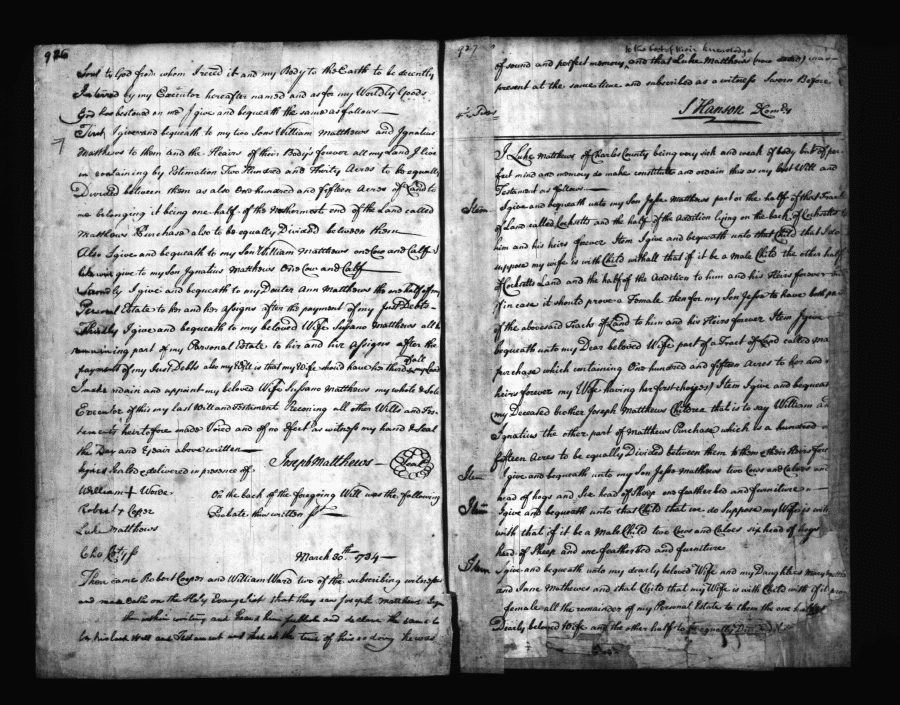 926
Soul to God from whom I reced it and my Body to the Earth to be decently
Interred by my Executor hereafter named and as for my Worldly Goods
God has bestowed on me I give and bequeath the same as follows
First I give and bequeath to my two Sons William Matthews and Ignatius
Matthews to them and the Heairs of their Body's forever all my Land I live
on containing by Estimation Two Hundred and thirty Acres to be equally
Divided between them as also One hundred and fifteen Acres of Land to
me belonging it being one half of the Northermost end of the Land called
Matthews Purchase also to be equally Divided between them
Also I give and bequeath to my Son William Matthews one Cow and Calfe I
likewise give to my Son Ignatius Matthews One Cow and Calf
I give and bequeath to my Douter Ann Matthews the one half of my
Personal Estate to her and her assigns after the payment of my just Debts
Thirdly I give and bequeath to my beloved Wife Susana Matthews all the
remaining part of my Personal Estate to her and her Assigns after the
payment of my Just Debts also my Will is that my Wife should have her thirds of my Land
I make ordain and appoint my beloved Wife Susana Matthews my whole & Sole
Executor of this my Last Will and Testiment Revoking all other Wills and Tes-
tements heirtofore made Void and of no Effect as witness my hand & Seal
the Day and Year above written
Signed Sealed & delivered in presence of
Joseph Matthews
Seal
William Ward
Robert Coper
Luke Matthews
On the back of the foregoing Will was the following
Probate thus written
March 30th 1734
Then came Robert Cooper and William Ward two of the subscribing
and made oath on the Holy Evangelist that they saw Joseph Matthews Sign
the within writing and heard him publish and declare the same to
be his last Will and Testament and that at the time of his so doing he was
927
to the best of their knowledge
of sound and perfect memory and that Luke Matthews (now dead) was
present at the same time and subscribed as a witness Sworn Before
S Hanson
I Luke Matthews of Charles County being very sick and weak of body but of per
fect mind and memory do make constitute and ordain this as my last Will and
Testament as follows
Item I give and bequeath unto my Son Jesse Matthews part or the half of that Tract
of Land called and the half of the Addition lying on the back of
him and his heirs forever Item I give and bequeath unto that Child that I do
suppose my wife is with Child withall that if it be a Male Child the other half
of Land and the half of the Addition to him and his Heirs forever and
if in case it should prove a Female then for my Son Jesse to have both parts
of the abovesaid Tracts of Land to him and his Heirs forever Item I give
bequeath unto my Dear beloved Wife part of a Tract of Land called
purchase which containing One hundred and fifteen Acres to her and
heirs forever my Wife having her first choise) Item I give and bequeath
my Deceased brother Joseph Matthews Children that is to say William and
Ignatius the other part of Matthews Purchase which is a hundred
fifteen Acres to be equally Divided between them to them & their Heirs
Item I give and bequeath unto my Son Jesse Matthews two Cows and Calves and
head of hogs and Six head of Sheep one featherbed and furniture
Item I give and bequeath unto that Child that we do suppose my Wife is with
with that if it be a Male Child two Cows and Calves six head of hogs
head of Sheep and one featherbed and furniture
Item I give and bequeath unto my dearly beloved Wife and my Daughters Mary
and Jane Mathews and that Child that my Wife is with Child with if it
female all the remainder of my Personal Estate to them the one half
Dearly beloved Wife and the other half to be equally Divided